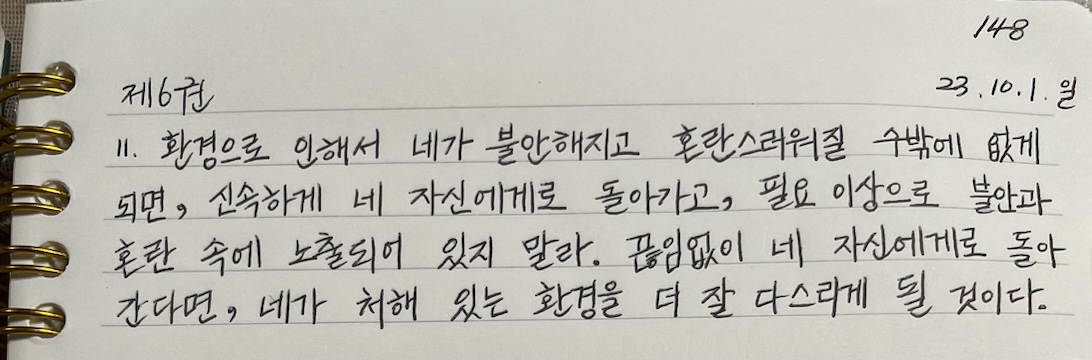 148
제6권
23.10.1.일
11. 환경으로 인해서 네가 불안해지고 혼란스러워질 수밖에 없게
되면, 신속하게 네 자신에게로 돌아가고, 필요 이상으로 불안과
혼란 속에 노출되어 있지 말라. 끊임없이 네 자신에게로 돌아
간다면, 네가 처해 있는 환경을 더 잘 다스리게 될 것이다.